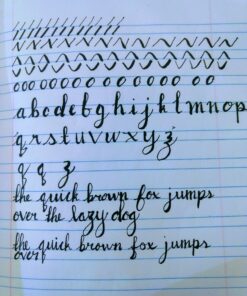 a b c d e f g h i j k l m n o p
q r s t u v w x y z
q q z
the quick brown fox jumps
over the lazy dog
the quick brown fox jumps
over